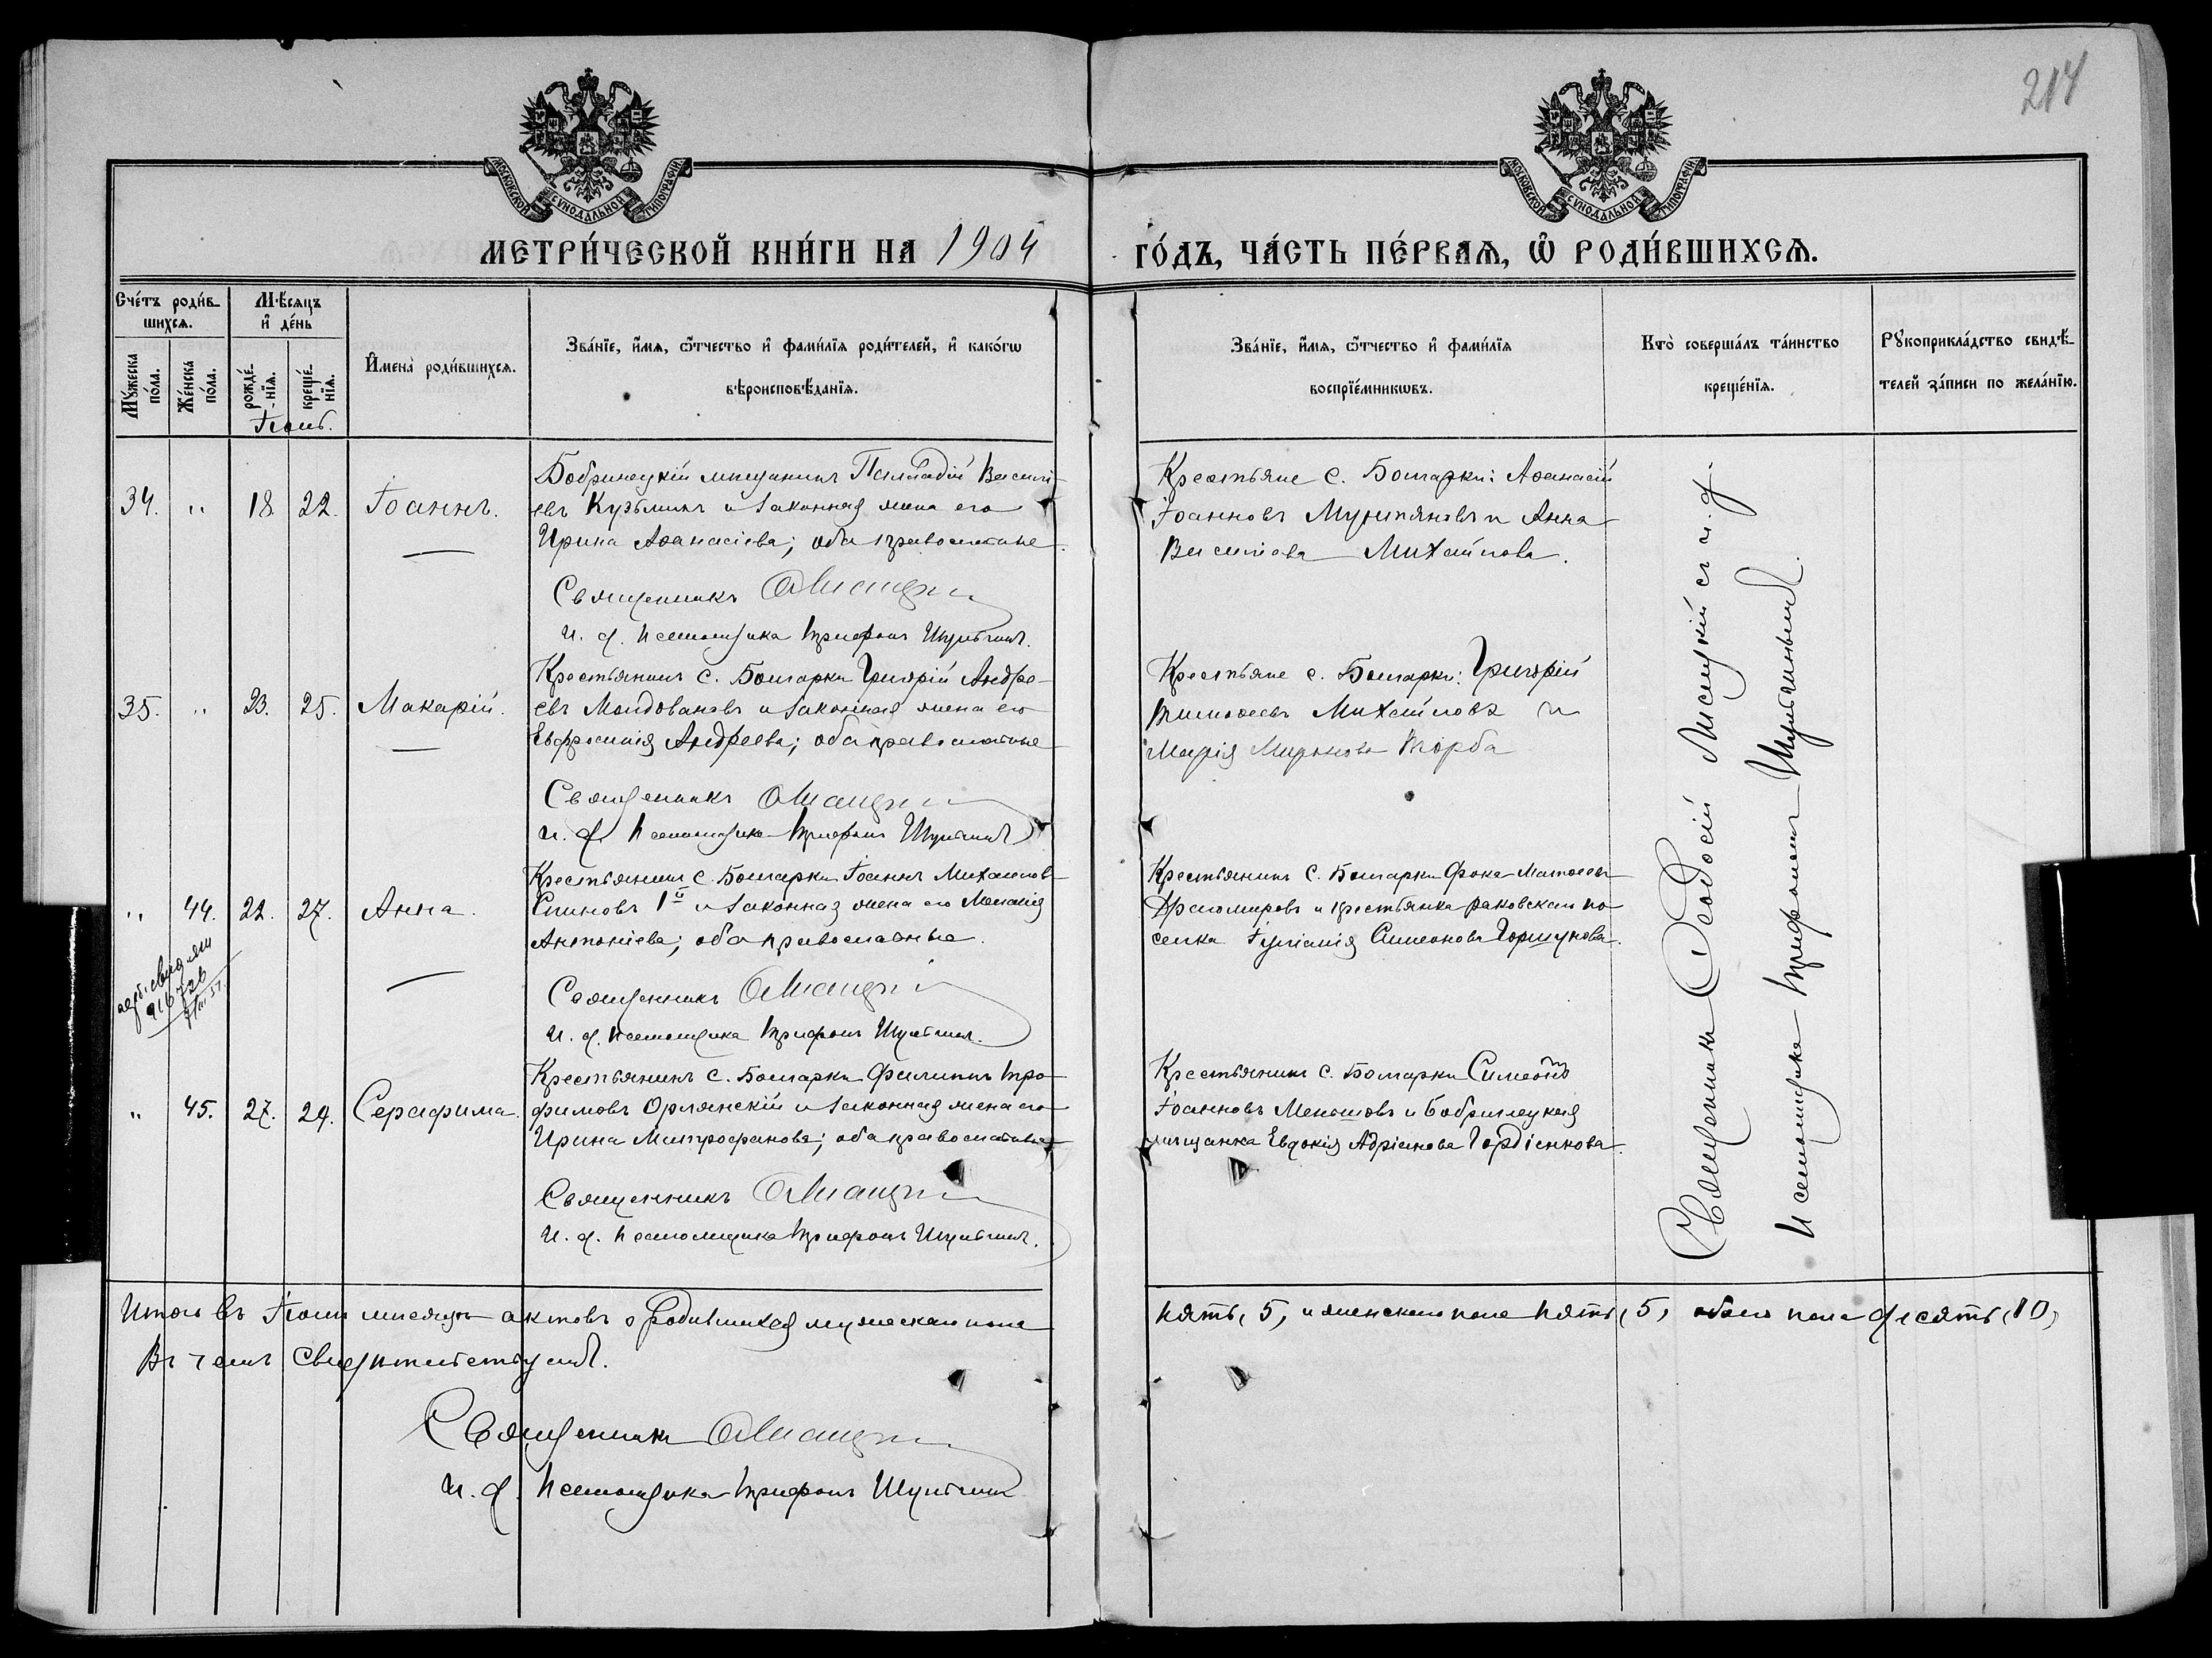 214
МОСКОВСКОЙ СУНОДАЛЬНОЙ ТИПОГРАФІИ
МОСКОВСКОЙ СУНОДАЛЬНОЙ ТИПОГРАФІИ
МЕТРИ́ЧЕСКОЙ КНИ́ГИ НА 1904
ГО́ДЪ, ЧА́СТЬ ПЕ́РВАѦ, Ѽ РОДИ́ВШИХСѦ.
Сче́тъ роди́в-
шихсѧ.
Мꙋ́жеска
по́ла.
Же́нска
по́ла.
Мѣ́сѧцъ
и҆ де́нь
рожде́-
нїѧ.
креще́-
нїѧ.
Іюнь.
И҆мена̀ роди́вшихсѧ.
Зва́нїе, и҆́мѧ, ѻ҆́тчество и҆ фами́лїѧ роди́телей, и҆ како́гѡ
вѣроисповѣ́данїѧ.
Зва́нїе, и҆́мѧ, ѻ҆́тчество и҆ фами́лїѧ
воспрїе́мникѡвъ.
Кто̀ соверша́лъ та́инство
креще́нїѧ.
Рꙋкоприкла́дство свидѣ́-
телей за́писи по жела́нїю.
34. " 18. 22. Іоаннъ.
Бобринецкій мѣщанинъ Палладій Василі-
евъ Кузьминъ и законная жена его
Ирина Аѳанасіева; оба православные.
Священникъ
И. д. псаломщика Трифонъ Шульгинъ.
Крестьяне с. Болгарки: Аѳанасій
Іоанновъ Мунтяновъ и Анна
Василіева Михайлова.
35. " 23. 25. Макарій.
Крестьянинъ с. Болгарки Григорій Андре-
евъ Молдовановъ и законная жена его
Евфросинія Андреева; оба православные
Священникъ
И. д. псаломщика Трифонъ Шульгинъ
Крестьяне с. Болгарки: Григорій
Тимоѳеевъ Михайловъ и
Марія Миронова Торба
" 44. 22. 27. Анна.
Крестьянинъ с. Болгарки Іоаннъ Михаилов
Слиновъ 1й и законная жена его Меланія
Антоніева; оба православные.
Священникъ
И. д. псаломщика Трифонъ Шульгинъ.
Крестьянинъ с. Болгарки Фока Матѳеевъ
Драгомировъ и крестьянка Раковскаго по-
селка Іуліанія Симеонова Горшунова.
916728
" 45. 27. 29. Серафима.
Крестьянинъ с. Болгарки Филиппъ Тро-
фимовъ Орлянскій и законная жена его
Ирина Митрофанова; оба православные
Священникъ
И. д. псаломщика Трифонъ Шульгинъ.
Крестьянинъ с. Болгарки Симеонъ
Іоанновъ Меньшовъ и Бобринецкая
мѣщанка Евдокія Адріанова Гордіенкова.
Священникъ Ѳеодосій Лисецкій съ и. д.
Псаломщика Трифономъ Шульгинымъ.
Итого въ Іюнѣ мѣсяцѣ актовъ о родившихся мужескаго пола
пять, 5, и женскаго пола пять, 5, обоего пола десять, 10,
Въ чемъ свидѣтельствуемъ.
Священникъ
И. д. псаломщика Трифонъ Шульгинъ